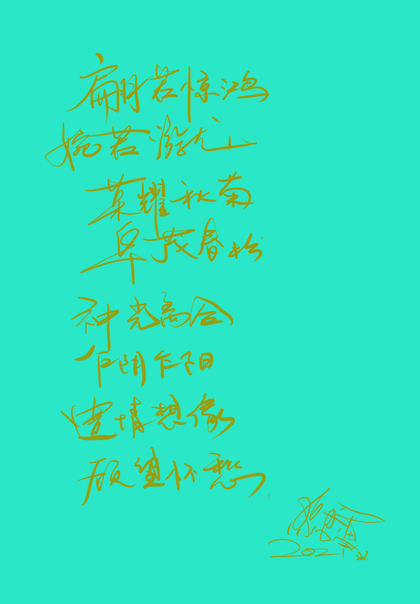 翩若惊鸿
婉若游龙
荣耀秋菊
华茂春松
神光离合
乍阴乍阳
遗情想像
顾望怀愁